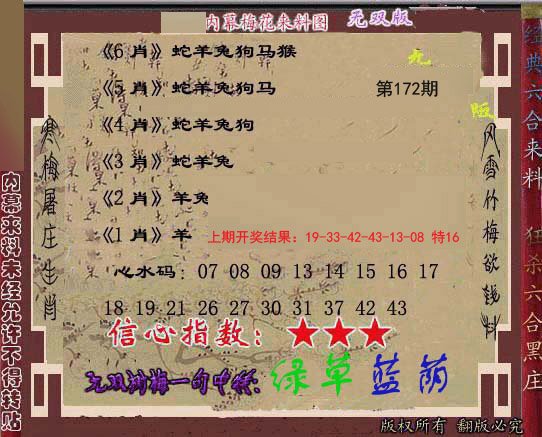 内幕梅花来料图 无双版
《6 肖》 蛇羊兔狗马猴
无
《5 肖》 蛇羊兔狗马 第172期
版
《4 肖》 蛇羊兔狗
《3 肖》 蛇羊兔
《2 肖》 羊兔
《1 肖》 羊 上期开奖结果：19-33-42-43-13-08 特16
心水码： 07 08 09 13 14 15 16 17
18 19 21 26 27 30 31 37 42 43
信心指数：★★★
无双剑梅一句中特：绿草蓝荫
寒梅屠庄生肖
风雪竹梅欲钱料
内幕来料未经允许不得转贴
经典六合来料 狂杀六合黑庄
版权所有 翻版必究